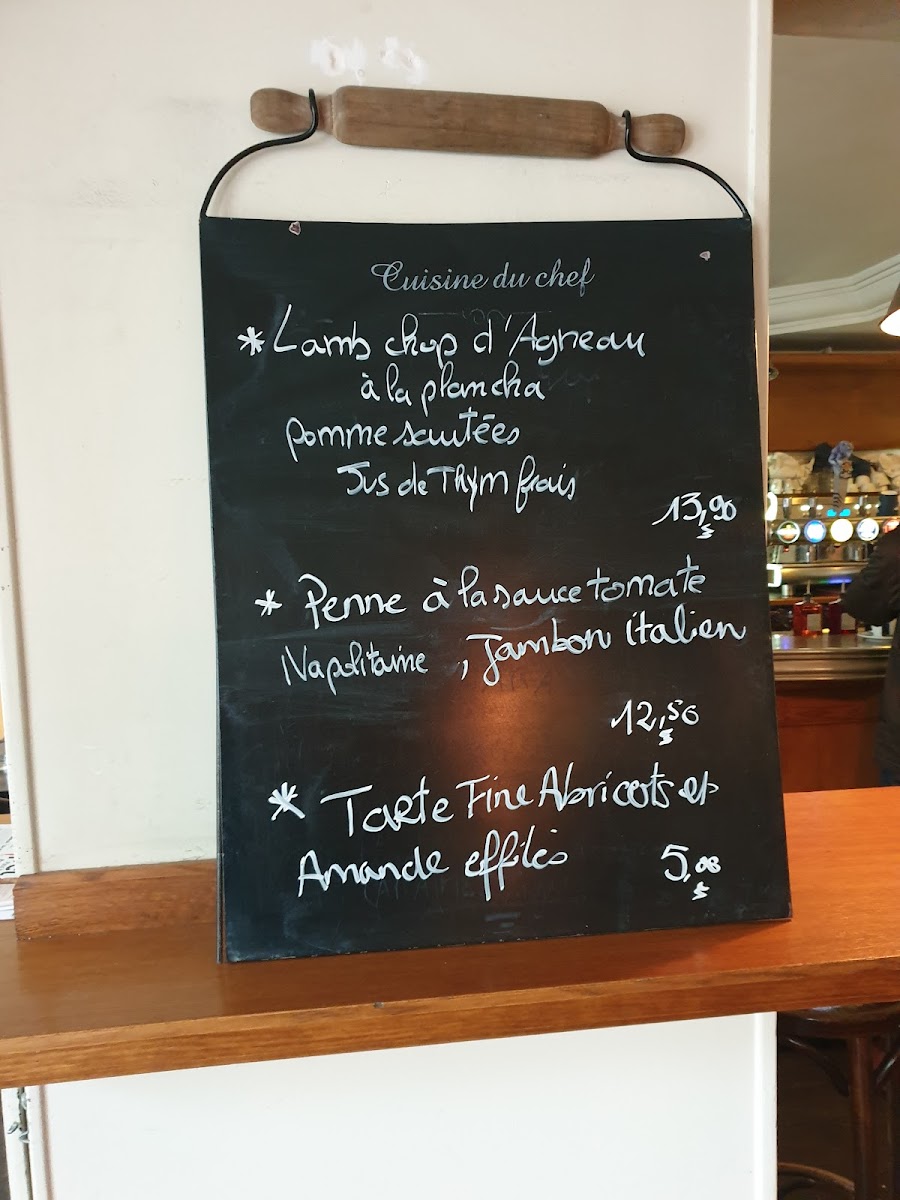 Cuisine du chef
* Lamb chop d'Agneau
à la plancha
pomme sautées
Jus de Thym frais
13,90
* Penne à la sauce tomate
Napolitaine, Jambon italien
12,50
* Tarte Fine Abricots et
Amande effilés 5,00